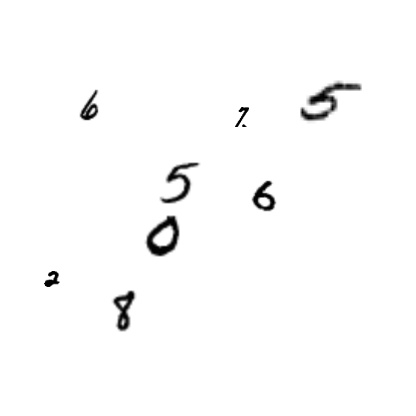 6 5
5 6
0
2
8